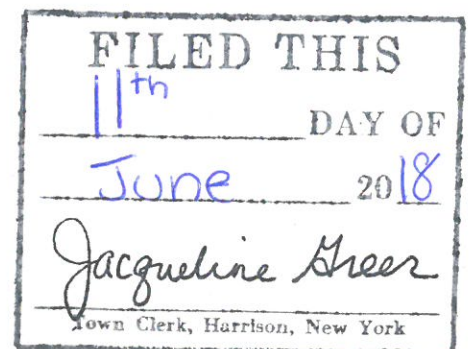 FILED THIS
11th
DAY OF
June 2018
Jacqueline Greer
Town Clerk, Harrison, New York